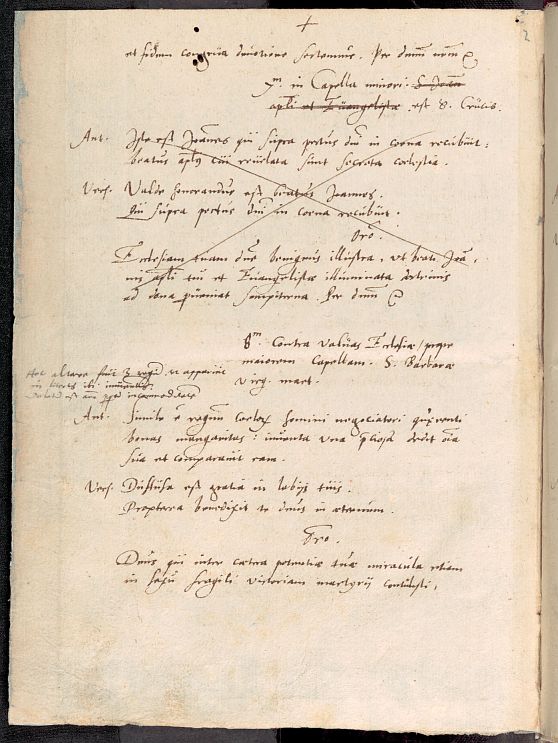 et fidem congrua devotione sectemur. Per dnm nrm
7m. in Capella minori S. Joan
apli et Euangelistæ est S. Crucis.
Ant. Iste est Joannes qui supra pectus dni in coena recubuit:
beatus aplus cui reuelata sunt secreta coelestia.
Vers. Valde honorandus est beatus Joannes.
Qui supra pectus dni in coena recubuit.
Oro.
Ecclesiam tuam dne benignus illustra, ut beati Joa
nis apli tui et Euangelistæ illuminata doctrinis
ad dona perueniat sempiterna. Per dnm
8m. Contra valuas Ecclesiæ prope
maiorem Capellam. S. Barbaræ
virg. mart.
Hoc altare fuit
Ant. Simile e regnum coelor homini negociatori quærenti
bonas margaritas: inuenta una pciosa dedit oia
sua et comparauit eam.
Vers. Diffusa est gratia in labijs tuis.
Propterea benedixit te deus in æternum.
Oro.
Deus qui inter cætera potentiæ tuæ miracula etiam
in sexu fragili victoriam martyrij contulisti,